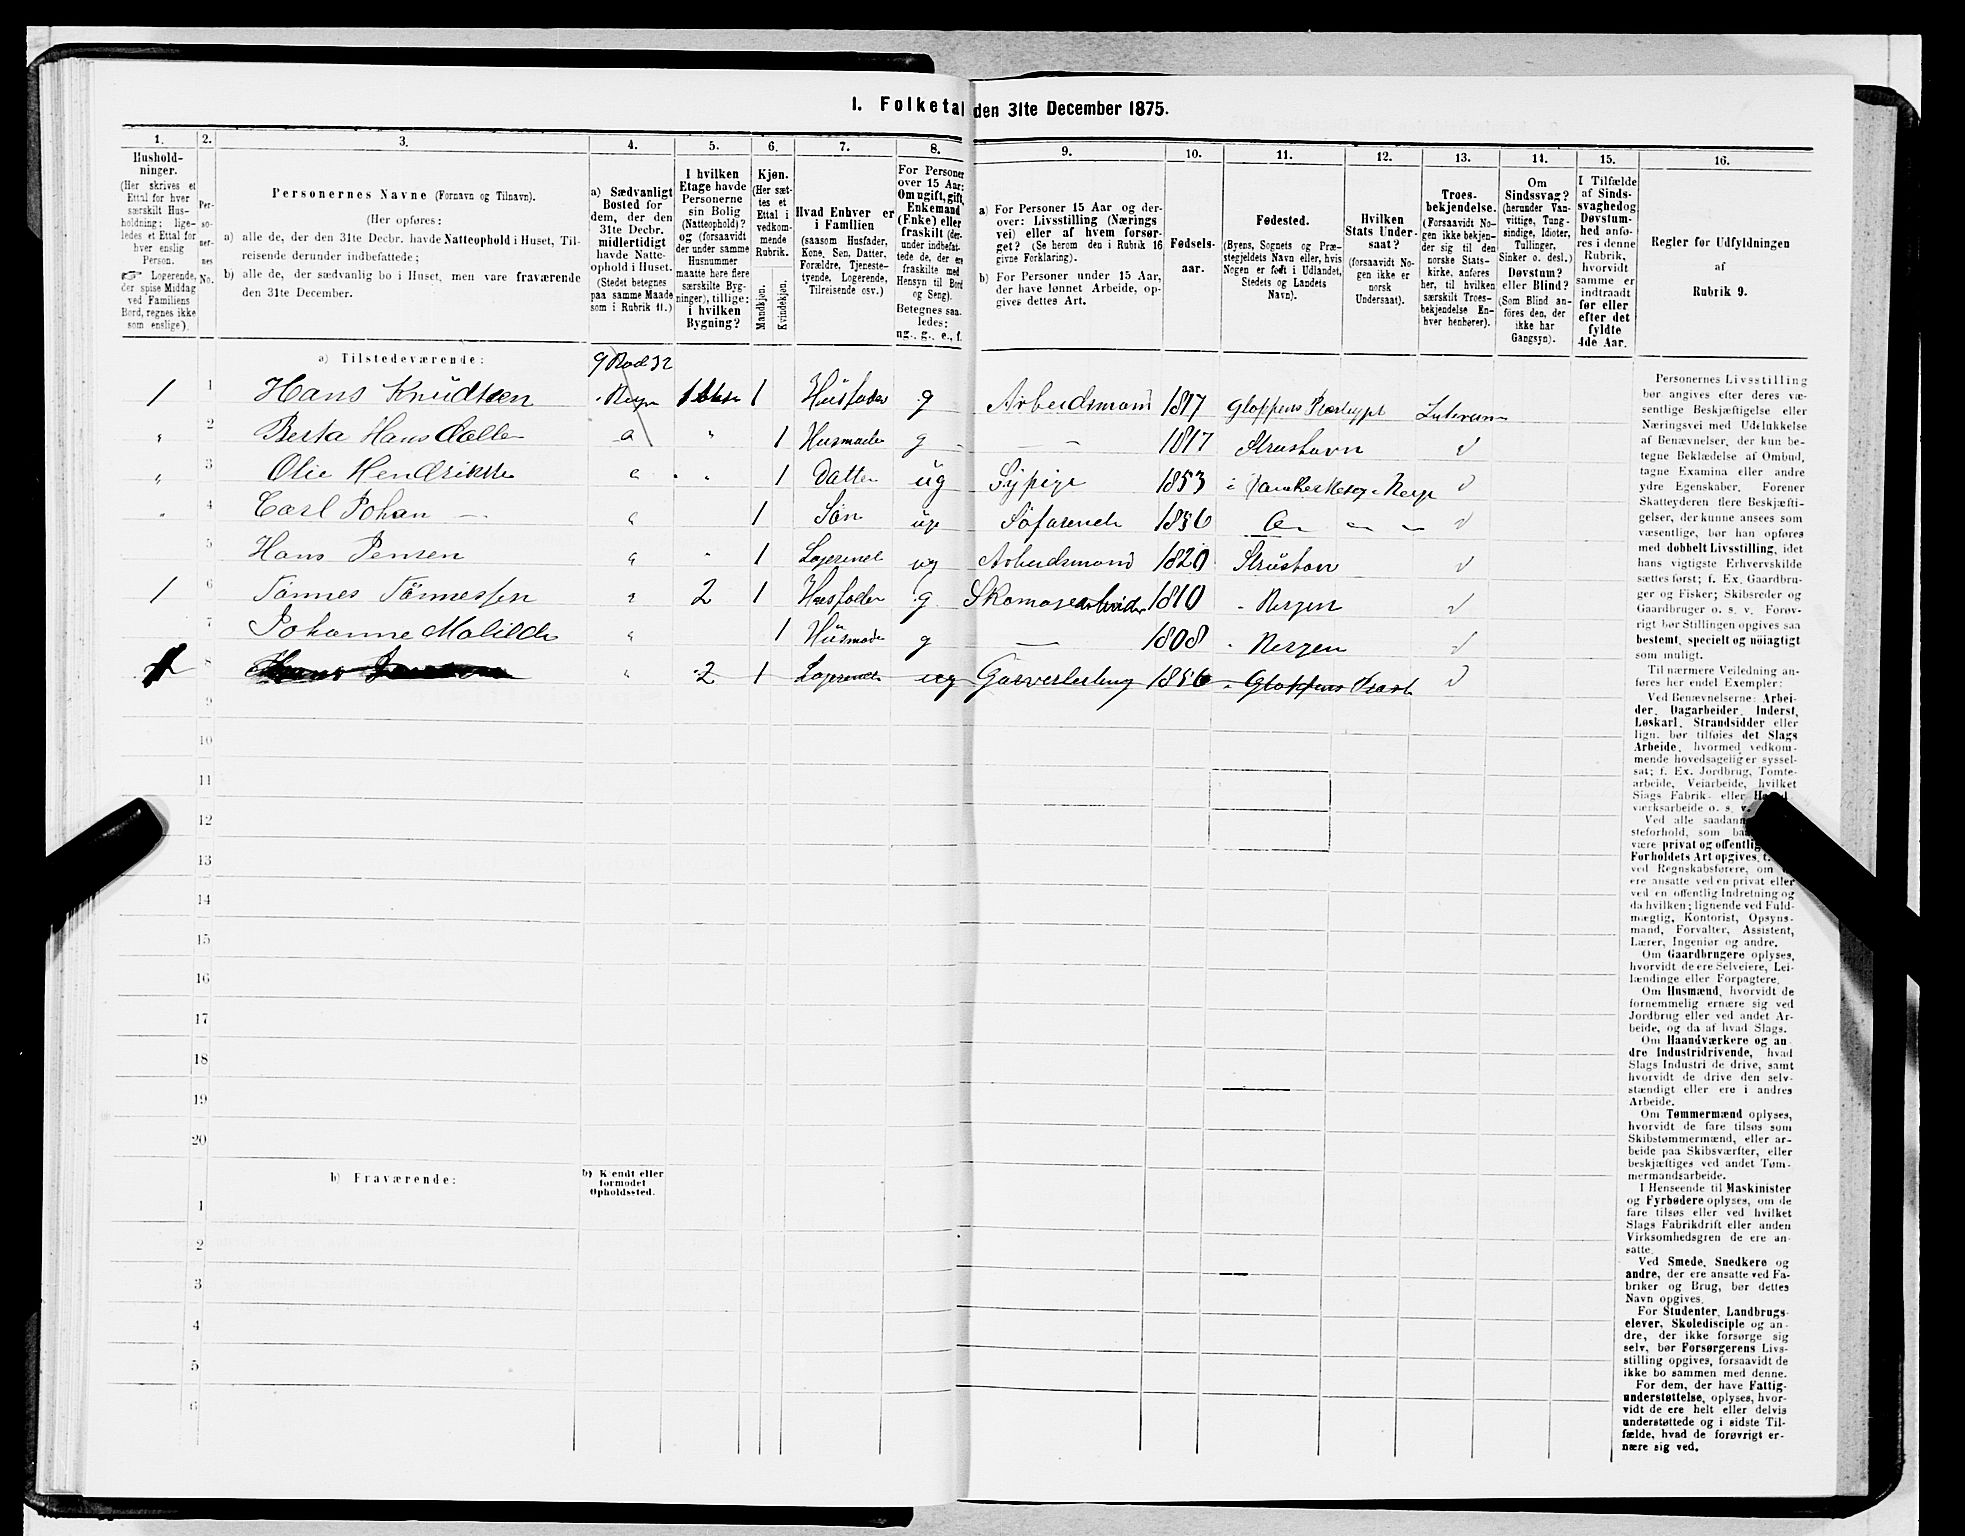 I. Folketal den 31te December 1875.
1.
2.
3.
4.
5.
6.
7.
8.
9.
10.
11.
12.
13.
14.
15.
16.
Hushold-
ninger.
(Her skrives et
Ettal for hver
særskilt Hus-
holdning; lige-
ledes et Ettal for
hver enslig
Person.
☞ Logerende,
der spise Middag
ved Familiens
Bord, regnes ikke
som enslige).
Per-
so-
ner-
nes
No.
Personernes Navne (Fornavn og Tilnavn).
(Her opføres:
a) alle de, der den 31te Decbr. havde Natteophold i Huset, Til-
reisende derunder indbefattede;
b) alle de, der sædvanlig bo i Huset, men vare fraværende
den 31te December.
a) Sædvanligt
Bosted for
dem, der den
31te Decbr.
midlertidigt
havde Natte-
ophold i Huset.
(Stedet betegnes
paa samme Maade
som i Rubrik 11.)
I hvilken
Etage havde
Personerne
sin Bolig
(Natteophold)?
og (forsaavidt
der under samme
Husnummer
maatte høre flere
særskilte Byg-
ninger), tillige:
i hvilken
Bygning?
Kjøn.
(Her sæt-
tes et
Ettal i
vedkom-
mende
Rubrik.
Mandkjøn.
Kvindekjøn.
Hvad Enhver er
i Familien
(saasom Husfader,
Kone, Søn, Datter,
Forældre, Tjeneste-
tyende, Logerende,
Tilreisende osv.)
For Personer
over 15 Aar:
Om ugift, gift,
Enkemand
(Enke) eller
fraskilt (der-
under indbefat-
tede de, der ere
fraskilte med
Hensyn til Bord
og Seng).
Betegnes saa-
ledes:
ug., g., e., f.
a) For Personer 15 Aar og der-
over: Livsstilling (Nærings
vei) eller af hvem forsør-
get? (Se herom den i Rubrik 16
givne Forklaring).
b) For Personer under 15 Aar,
der have lønnet Arbeide, op-
gives dettes Art.
Fødsels-
aar.
Fødested.
(Byens, Sognets og Præ-
stegjeldets Navn eller, hvis
Nogen er født i Udlandet,
Stedets og Landets
Navn).
Hvilken
Stats Under-
saat?
(forsaavidt No-
gen ikke er
norsk
Undersaat).
Troes-
bekjendelse.
(Forsaavidt No-
gen ikke bekjen-
der sig til den
norske Stats-
kirke, anføres
her, til hvilken
særskilt Troes-
bekjendelse En-
hver henhører).
Om
Sindssvag?
(herunder Van-
vittige, Tung-
sindige, Idioter,
Tullinger,
Sinker o. desl.)
Døvstum?
eller Blind?
(Som Blind an-
føres den, der
ikke har
Gangsyn).
I Tilfælde
af Sinds-
svaghed og
Døvstum-
hed anfø-
res i denne
Rubrik,
hvorvidt
samme er
indtraadt
før eller
efter det
fyldte
4de Aar.
Regler for Udfyldningen
af
Rubrik 9.
a) Tilstedeværende:
9 Rod 32
1 1 Hans Knudtsen 1 Husfader g Arbeidsmand 1817 Luteran
" 2 Berta Hans Datter " 1 Husmoder g 1817
" 3 Olie Hendrikke " 1 Datter ug Sypige 1853
" 4 Carl Johan 1 Søn ug Søfarende 1856
5 Hans Jensen " 1 Logerende ug Arbeidsmand 1820
1 6 Tönnes Tönnessen " 2 1 Husfader g 1810 Bergen
7 Johanne Matilde 1 Husmoder g 1808 Bergen
8 2 1 Logerende ug 1856 Gloppens
9
10
11
12
13
14
15
16
17
18
19
20
b) Fraværende:
b) Kjendt eller
formodet
Opholdssted.
1
2
3
4
5
6
Personernes Livsstilling
bør angives efter deres væ-
sentlige Beskjæftigelse eller
Næringsvei med Udelukkelse
af Benævnelser, der kun be-
tegne Beklædelse af Ombud,
tagne Examina eller andre
ydre Egenskaber. Forener
Skatteyderen flere Beskjæfti-
gelser, der kunne ansees som
væsentlige, bør han opføres
med dobbelt Livsstilling, idet
hans vigtigste Erhvervskilde
sættes først; f. Ex. Gaardbru-
ger og Fisker; Skibsreder og
Gaardbruger o. s. v. Forøv-
rigt bør Stillingen opgives saa
bestemt, specielt og nøiagtigt
som muligt.
Til nærmere Veiledning an-
føres her endel Exempler:
Ved Benævnelserne: Arbei-
der, Dagarbeider, Inderst,
Løskarl, Strandsidder eller
lign. bør tilføies det Slags
Arbeide, hvormed vedkom-
mende hovedsagelig er syssel-
sat; f. Ex. Jordbrug, Tomte-
arbeide, Veiarbeide, hvilket
Slags Fabrik- eller
værksarbeide o. s. v.
Ved alle
steforhold, som
være privat og
Forholdets Art opgives,
ved Regnskabsførere, om
ere ansatte ved en privat eller
ved en offentlig Indretning og
da hvilken; lignende ved Fuld-
mægtig, Kontorist, Opsyns-
mand, Forvalter, Assistent,
Lærer, Ingeniør og andre.
Om Gaardbrugere oplyses,
hvorvidt de ere Selveiere, Lei-
lændinge eller Forpagtere.
Om Husmænd, hvorvidt de
fornemmelig ernære sig ved
Jordbrug eller ved andet Ar-
beide, og da af hvad Slags.
Om Haandværkere og an
dre Industridrivende, hvad
Slags Industri de drive, samt
hvorvidt de drive den selv-
stændigt eller ere i andres
Arbeide.
Om Tømmermænd oplyses,
hvorvidt de fare tilsøs som
Skibstømmermænd, eller ar-
beide paa Skibsværfter, eller
beskjæftiges ved andet Tøm-
mermandsarbeide.
I Henseende til Maskinister
og Fyrbødere oplyses, om de
fare tilsøs eller ved hvilket
Slags Fabrikdrift eller anden
Virksomhedsgren de ere an-
satte.
Ved Smede, Snedkere og
andre, der ere ansatte ved Fa-
briker og Brug, bør dettes
Navn opgives.
For Studenter, Landbrugs-
elever, Skoledisciple og an-
dre, der ikke forsørge sig
selv, bør Forsørgerens Livs-
stilling opgives, forsaavidt de
ikke bo sammen med denne.
For dem, der have Fattig-
understøttelse, oplyses, hvor-
vidt de ere helt eller delvis
understøttede og i sidste Til-
fælde, hvad de forøvrigt er-
nære sig ved.